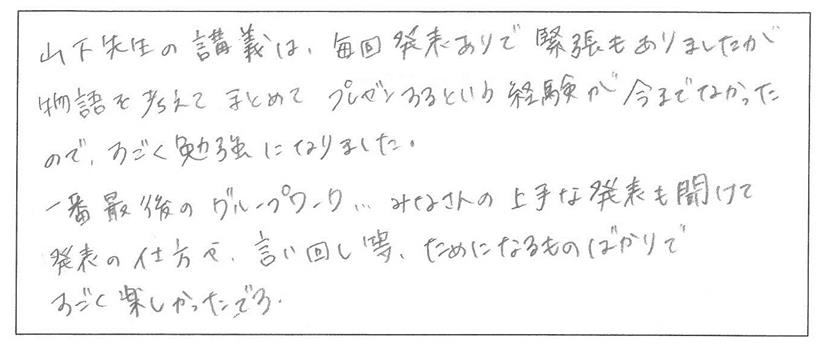 山下先生の講義は、毎回発表ありで緊張もありましたが
物語を考えてまとめてプレゼンするという経験が今までなかった
ので、すごく勉強になりました。
一番最後のグループワーク… みなさんの上手な発表も聞けて
発表の仕方や、言い回し等、ためになるものばかりで
すごく楽しかったです.